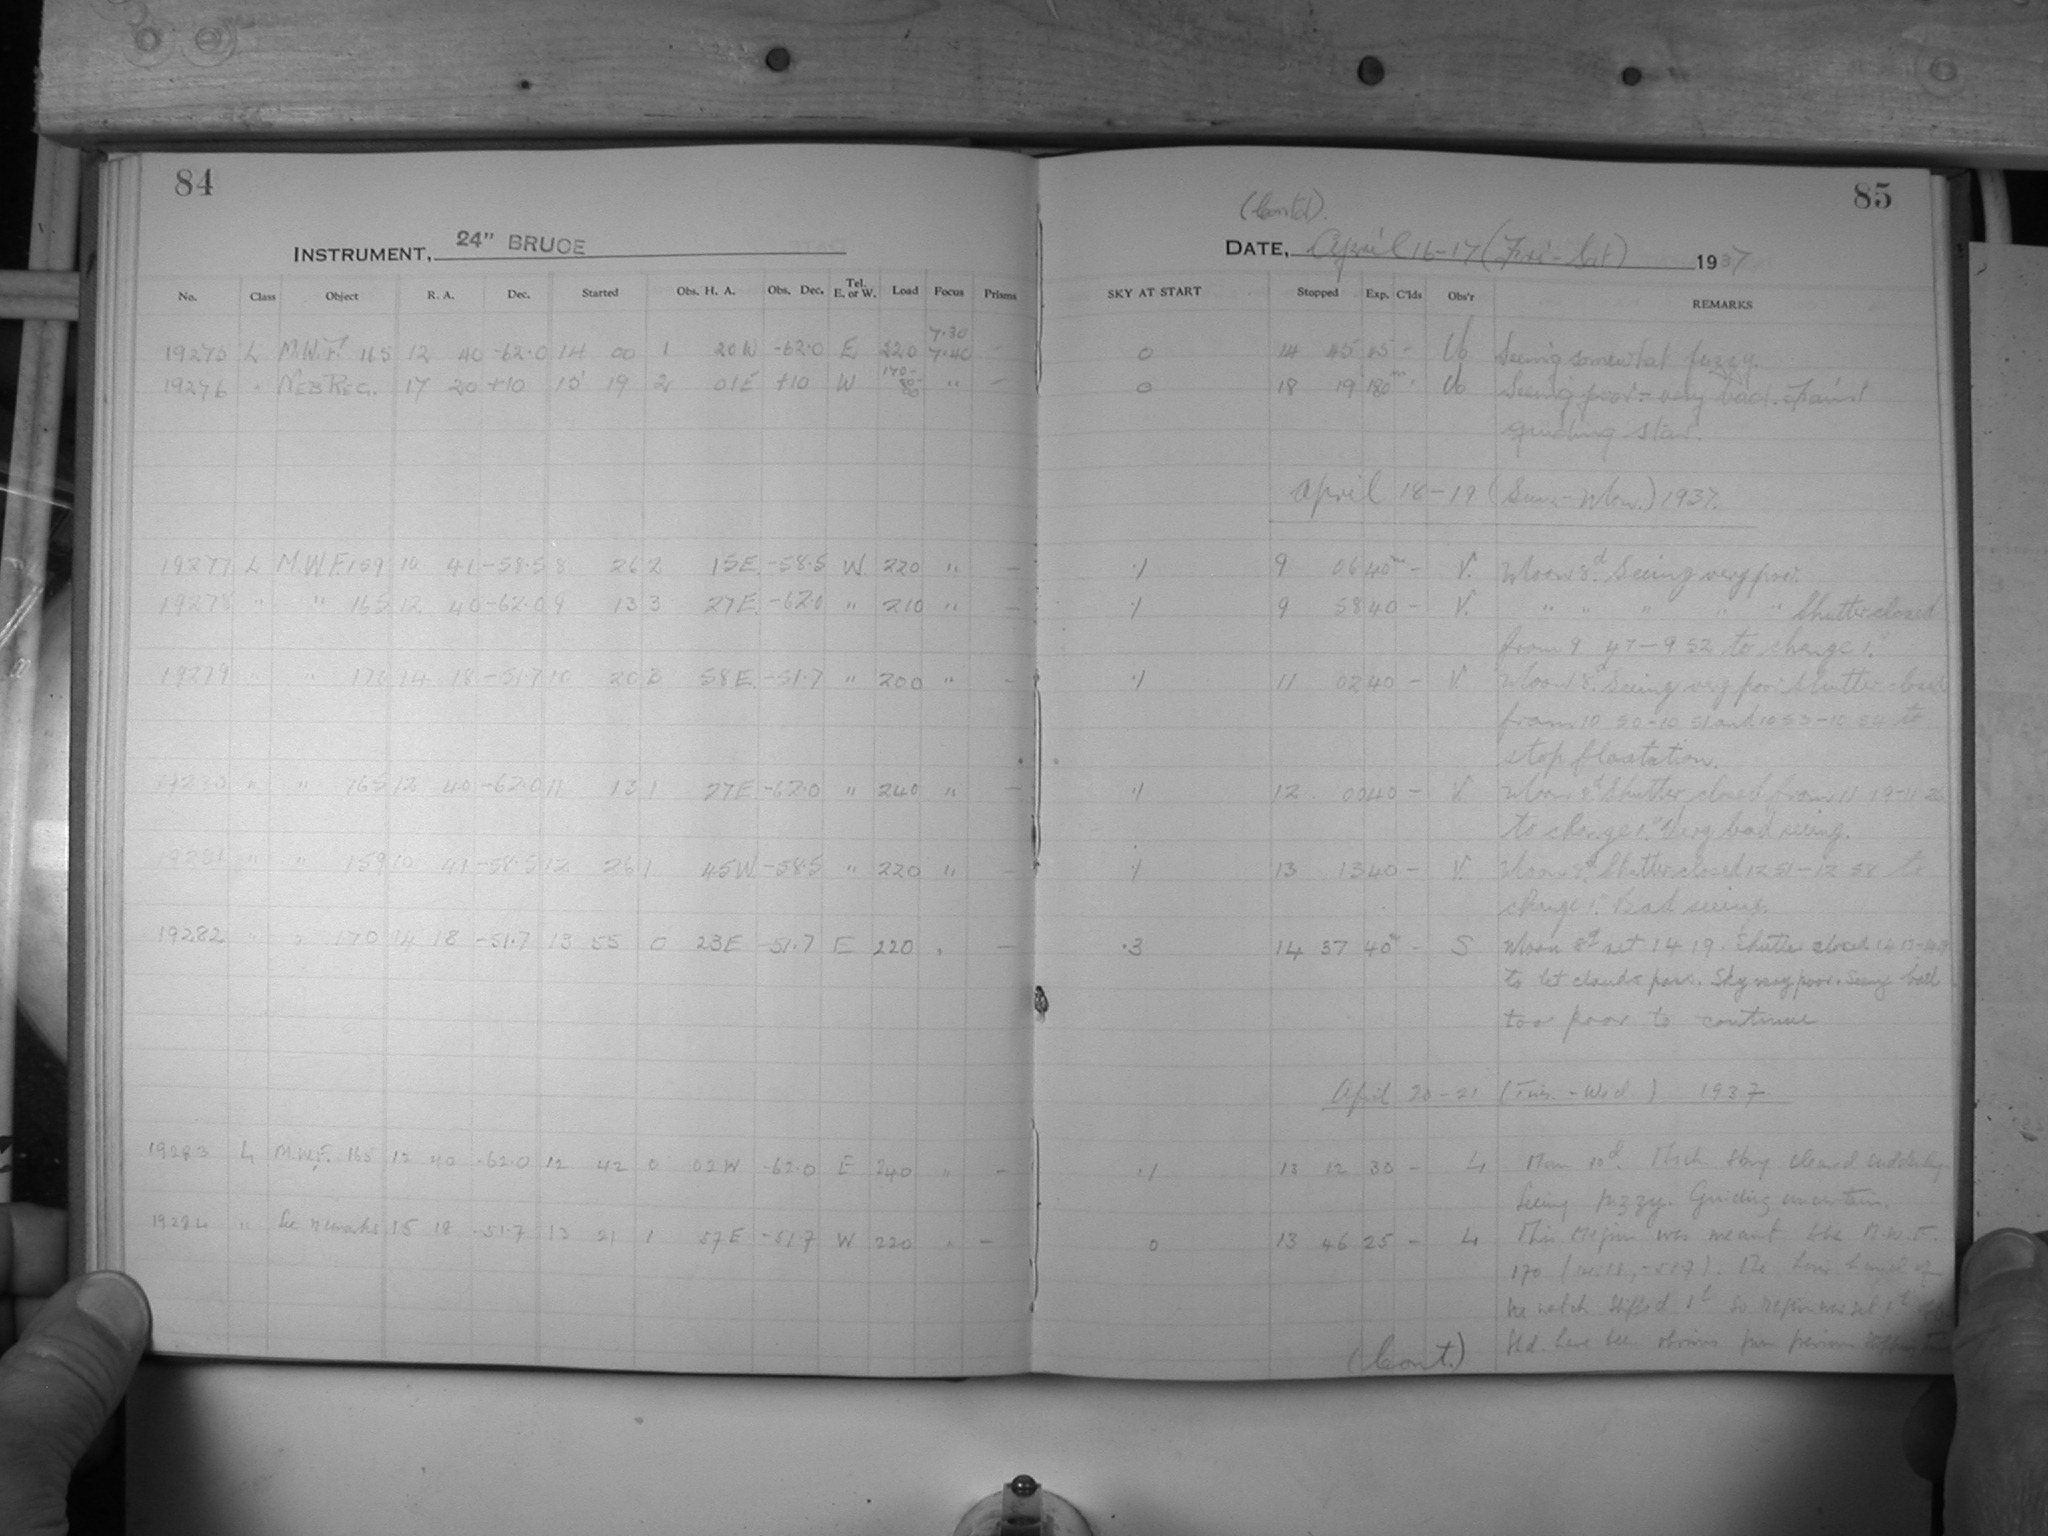 84
INSTRUMENT, 24" BRUCE
No. Class Object R. A. Dec. Started Obs. H. A. Obs. Dec. Tel. E. or W. Load Focus Prisms
7.30
19275 L M.W.F. 165 12 40 -62.0 14 00 1 20W -62.0 E 220 7.40 -
19276 " NEB REG. 17 20 +10 15 19 2 01E +10 W 170- " -
19277 L M.W.F. 159 10 41 -58.5 8 26 2 15E. -58.5 W. 220 " -
19278 " " 165 12 40 -62.0 9 13 3 27E. -62.0 " 210 " -
19279 " " 170 14 18 -51.7 10 20 3 58E. -51.7 " 200 " -
19280 " " 165 12 40 -62.0 11 13 1 27E -62.0 " 240 " -
19281 " " 159 10 41 -58.5 12 26 1 45W. -58.5 " 220 " -
19282 " " 170 14 18 -51.7 13 55 0 23E -51.7 E 220 " -
19283 L M.W.F. 165 12 40 -62.0 12 42 0 02W -62.0 E 240 " -
19284 " See remarks 15 18 -51.7 13 21 1 57E -51.7 W 220 " -
85
(Cont'd).
DATE, April 16-17 (Fri-Sat) 1937
SKY AT START Stopped Exp. C'lds Obs'r REMARKS
0 14 45 45 - Seeing somewhat fuzzy.
0 18 19 180m - Seeing poor = very bad. Faint
guiding star.
April 18-19 (Sun.-Mon.) 1937.
.1 9 06 40m - V. Moon 8d. Seeing very poor.
.1 9 58 40 - V. " " " " " Shutter closed
from 9 47-9 52 to change 1."
.1 11 02 40 - V. Moon 8d. Seeing very poor. Shutter closed
from 10 50-10 51 and 10 53-10 54 to
stop floatation.
.1 12 00 40 - V. Moon 8d. Shutter closed from 11 19-11 26
to change 1." Very bad seeing.
.1 13 13 40 - V. Moon 8d. Shutter closed 12 51-12 58 to
change 1." Bad seeing.
.3 14 37 40m - S Moon 8d set 14 19. Shutter closed
to let clouds pass. Sky very poor. Seeing bad
too poor to continue
April 20-21 (Tues.-Wed) 1937
.1 13 12 30 - L Moon 10d. Thick. Sky cleared suddenly
Seeing fuzzy. Guiding uncertain.
0 13 46 25 - L This region was meant to be M.W.F.
170 (14 18, -51.7). The hour hand of
the watch shifted 1h so region was set 1h
Shd. have been obvious from previous stopping
(Cont.)